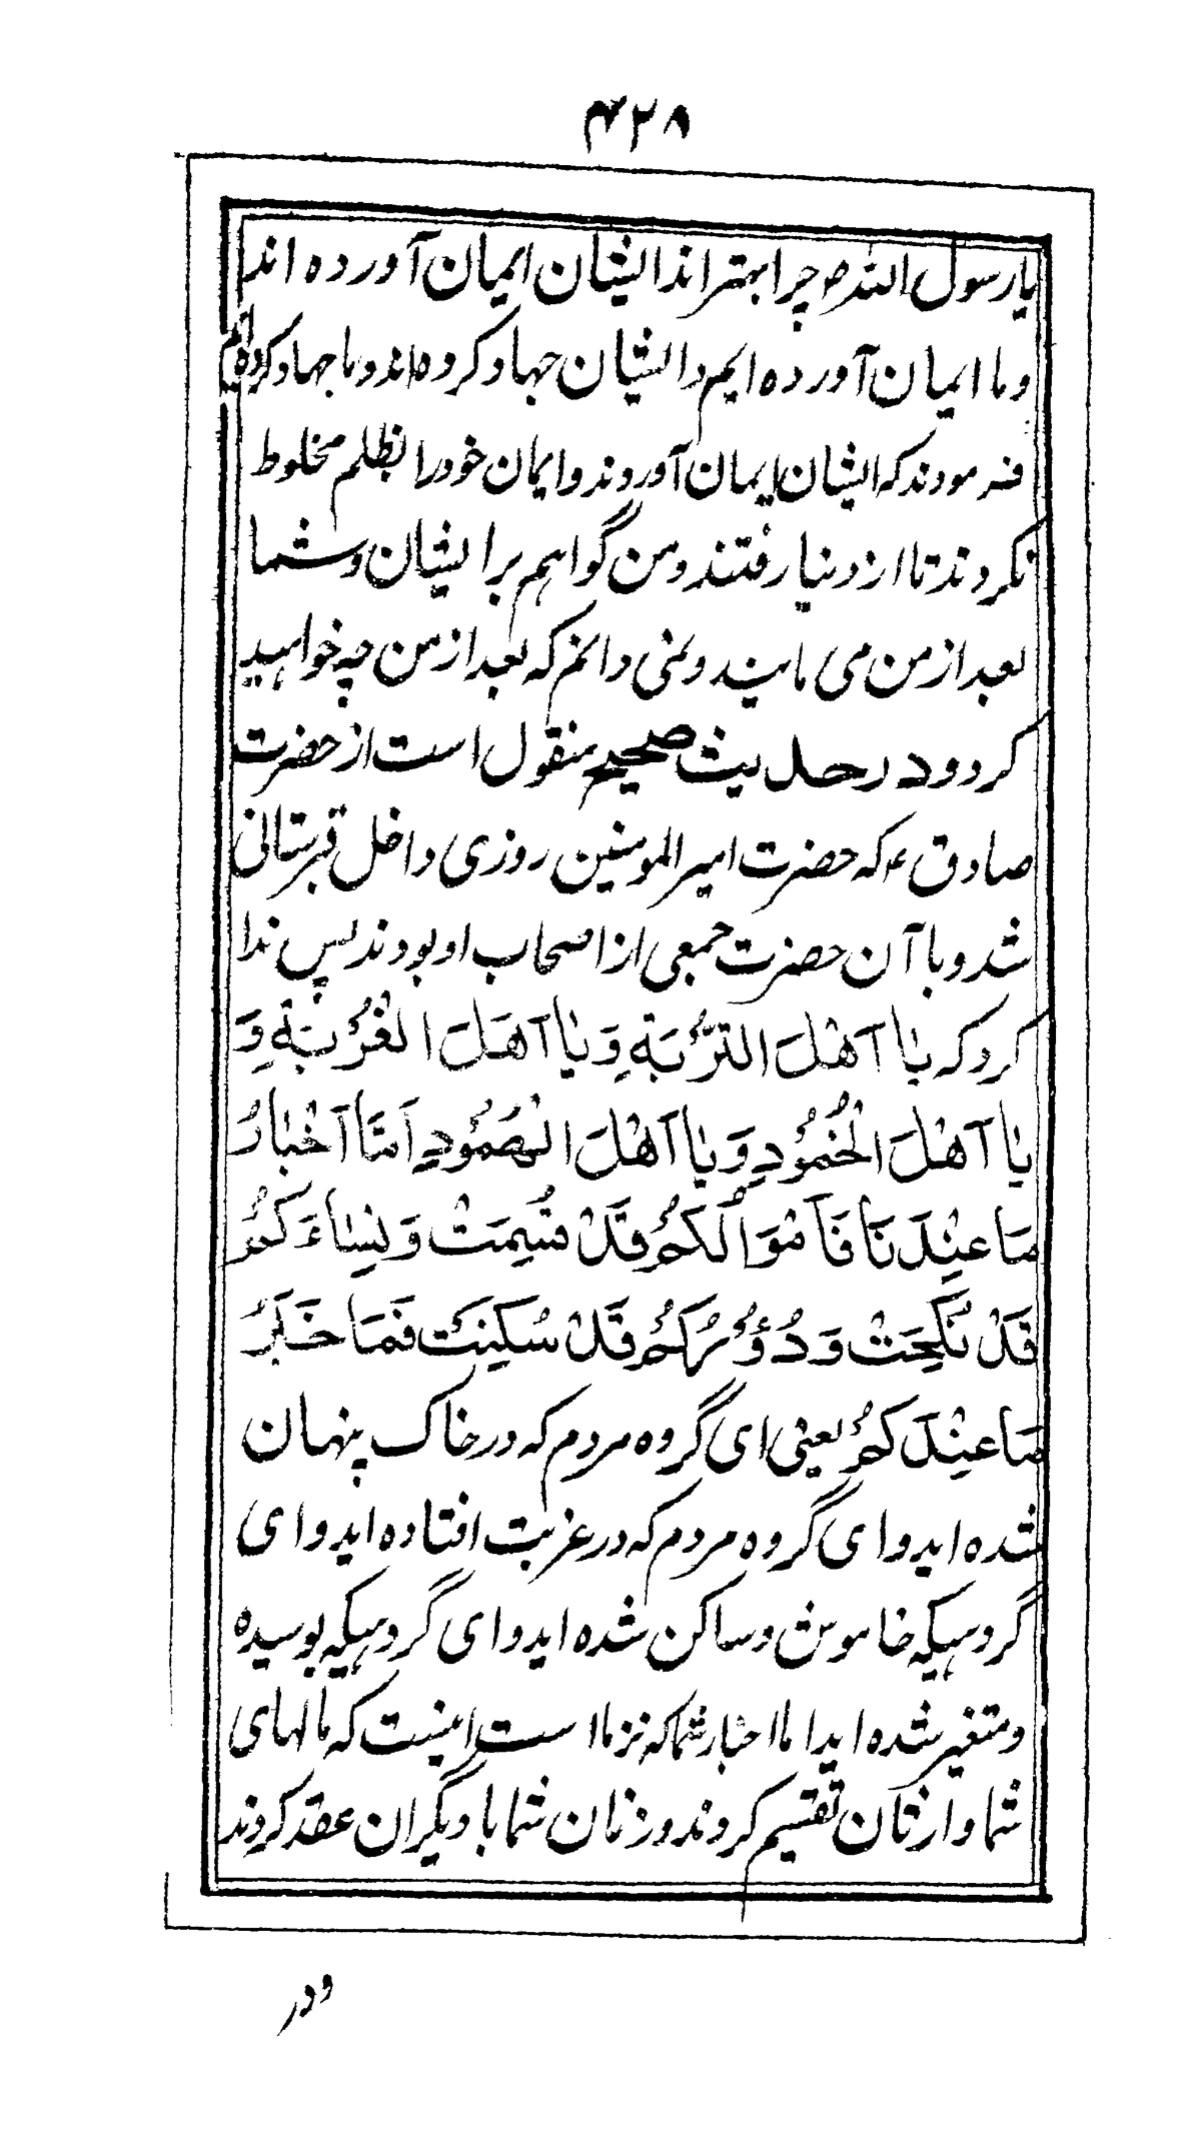 ۴۲۸
یا رسول اللہ ص چرا بهتر اند ایشان ایمان آورده اند
وما ایمان آورده ایم و ایشان جهاد کرده اند و ما جهاد کرده ایم
فرمودند که ایشان ایمان آوردند و ایمان خود را بظلم مخلوط
نکردند تا از دنیا رفتند و من گواهم بر ایشان و شما
بعد از من می مانید و نمی دانم که بعد از من چه خواهید
کرد و در حدیث صحیح منقول است از حضرت
صادق ع که حضرت امیر المومنین روزی داخل قبرستانی
شد و با آن حضرت جمعی از اصحاب او بودند پس ندا
کرد که یٰا اَهْلَ التُّرْبَةِ وَ یٰا اَهَلَ الْغُرْبَةِ وَ
یٰا اَهْلَ الْخُمُوْدِ وَ یٰا اَهْلَ الْهُمُوْدِ اَمَّا اَخْبٰارُ
مَا عِنْدَنَا فَاَمْوَالُكُمْ قَدْ قُسِمَتْ وَ نِسٰاءَكُمْ
قَدْ نُكِحَتْ وَ دُوُرُكُمْ قَدْ سُكِنَتْ فَمَا خَبَرُ
مَا عِنْدَكُمْ یعنی ای گروه مردم که در خاک پنهان
شده اید و ای گروه مردم که در غربت افتاده اید و ای
گروهیکه خاموش و ساکن شده اید و ای گروهیکه بوسیده
و متغیر شده اید اما اخبار شما که نزد ما است اینست که مالهای
شما وارثان تقسیم کردند و زنان شما با دیگران عقد کردند
و در